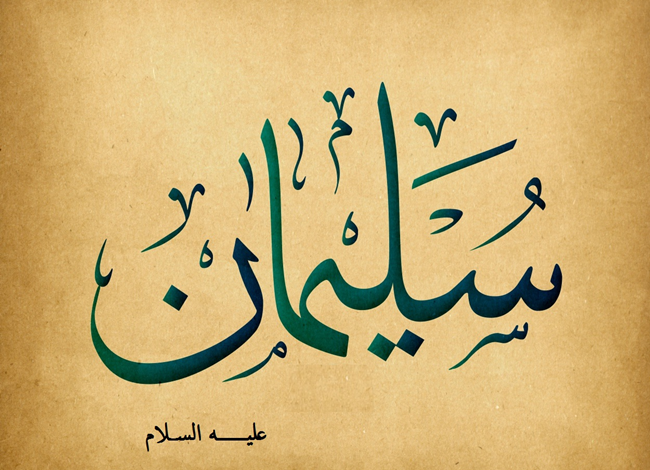 سليمان
عليه السلام